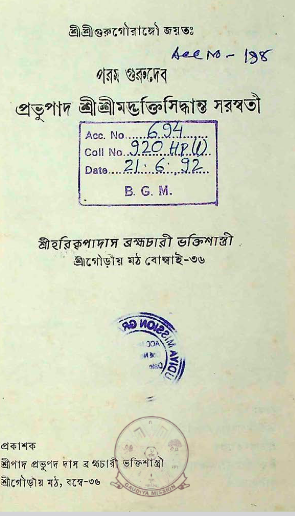 শ্রীশ্রীগুরুগৌরাঙ্গৌ জয়তঃ
Acc No - 198
পরম গুরুদেব
প্রভুপাদ শ্রীশ্রীমদ্ভক্তিসিদ্ধান্ত সরস্বতী
Acc. No. 694
Coll No. 920 HP(1)
Date 21.6.92
B. G. M.
শ্রীহরিকৃপাদাস ব্রহ্মচারী ভক্তিশাস্ত্রী
শ্রীগৌড়ীয় মঠ বোম্বাই-৩৬
প্রকাশক
শ্রীপাদ প্রভুপদ দাস ব্রহ্মচারী ভক্তিশাস্ত্রী
শ্রীগৌড়ীয় মঠ, বম্বে-৩৬
GAUDIYA MISSION